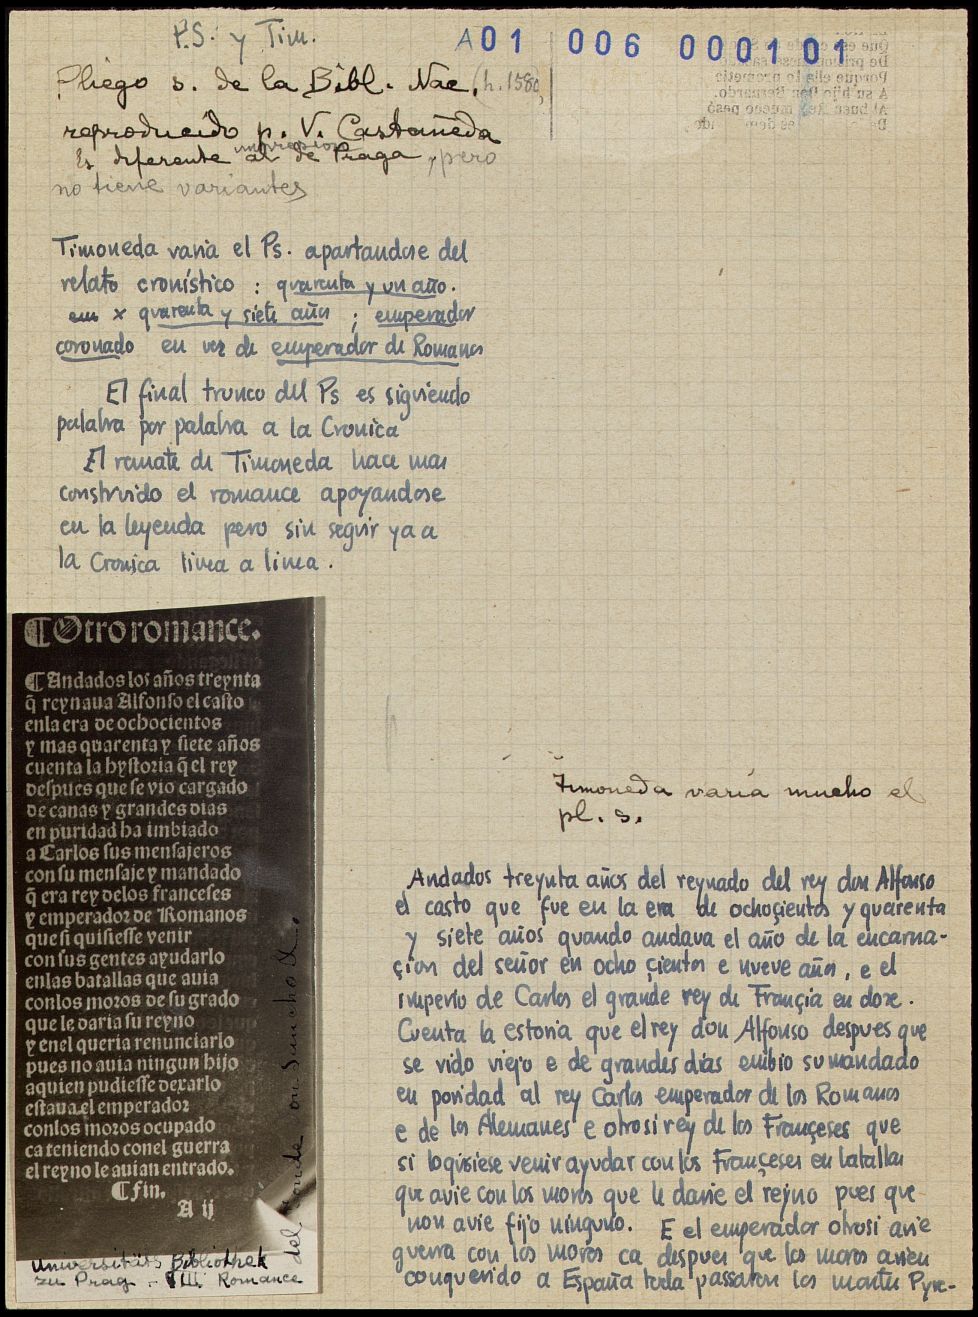 P.S. y Tim.
A01 006 000101
Pliego s. de la Bibl. Nac. (h. 1580)
reproducido p. V. Castañeda
Es diferente impresion al de Praga, pero
no tiene variantes
Timoneda varia el Ps. apartandose del
relato cronístico : quarenta y un año.
em x quarenta y siete años ; emperador
coronado en vez de emperador de Romanos
El final trunco del Ps es siguiendo
palabra por palabra a la Cronica
El remate de Timoneda hace mas
construido el romance apoyandose
en la leyenda pero sin seguir ya a
la Cronica linea a linea.
¶Otro romance.
¶Andados los años treynta
q̃ reynaua Alfonso el casto
enla era de ochocientos
y mas quarenta y siete años
cuenta la hystoria q̃ el rey
despues que se vio cargado
de canas y grandes dias
en puridad ha imbiado
a Carlos sus mensajeros
con su mensaje y mandado
q̃ era rey delos franceses
y emperador de Romanos
que si quisiesse venir
con sus gentes ayudarlo
enlas batallas que auia
conlos moros de su grado
que le daria su reyno
y enel queria renunciarlo
pues no auia ningun hijo
aquien pudiesse dexarlo
estaua el emperador
conlos moros ocupado
ca teniendo conel guerra
el reyno le auian entrado.
¶Fin.
A ij
del conde don Sancho
Universitäts Bibliothek
zu Prag - VIII. Romance
Timoneda varía mucho el
pl. s.
Andados treynta años del reynado del rey don Alfonso
el casto que fue en la era de ochoçientos y quarenta
y siete años quando andava el año de la encarna-
çion del señor en ocho çientos e nueve años, e el
imperio de Carlos el grande rey de Françia en doze.
Cuenta la estoria que el rey don Alfonso despues que
se vido viejo e de grandes dias embio su mandado
en poridad al rey Carlos emperador de los Romanos
e de los Alemanes e otrosi rey de los Françeses que
si lo quisiese venir ayudar con los Françeses en batallas
que avie con los moros que le darie el reyno pues que
non avie fijo ninguno. E el emperador otrosi avie
guerra con los moros ca despues que los moros avien
conquerido a España toda passaron los montes Pyre-